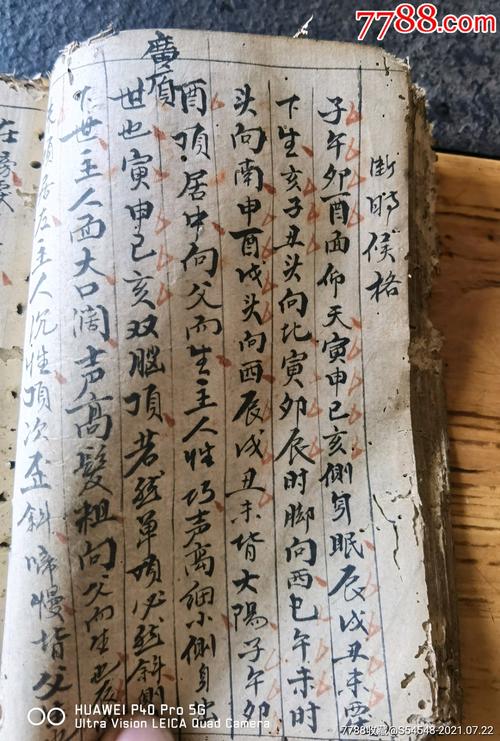 7788.com
断時侯格
子午卯酉面仰天寅申巳亥側身眠辰戌丑未
下生亥子丑头向北寅卯辰时脚向西巳午未时
头向南申酉戌头向西辰戌丑未背太陽子午卯
廣項
酉項居中向父而生主人性巧声高细小側身
世也寅申巳亥双胜項若然单項必然斜側
下世主人面大口阔声高髮粗向父而生也
左主人沉性項次歪斜啼慢背父
HUAWEI P40 Pro 5G
Ultra Vision LEICA Quad Camera
7788收藏@S54548-2021.07.22